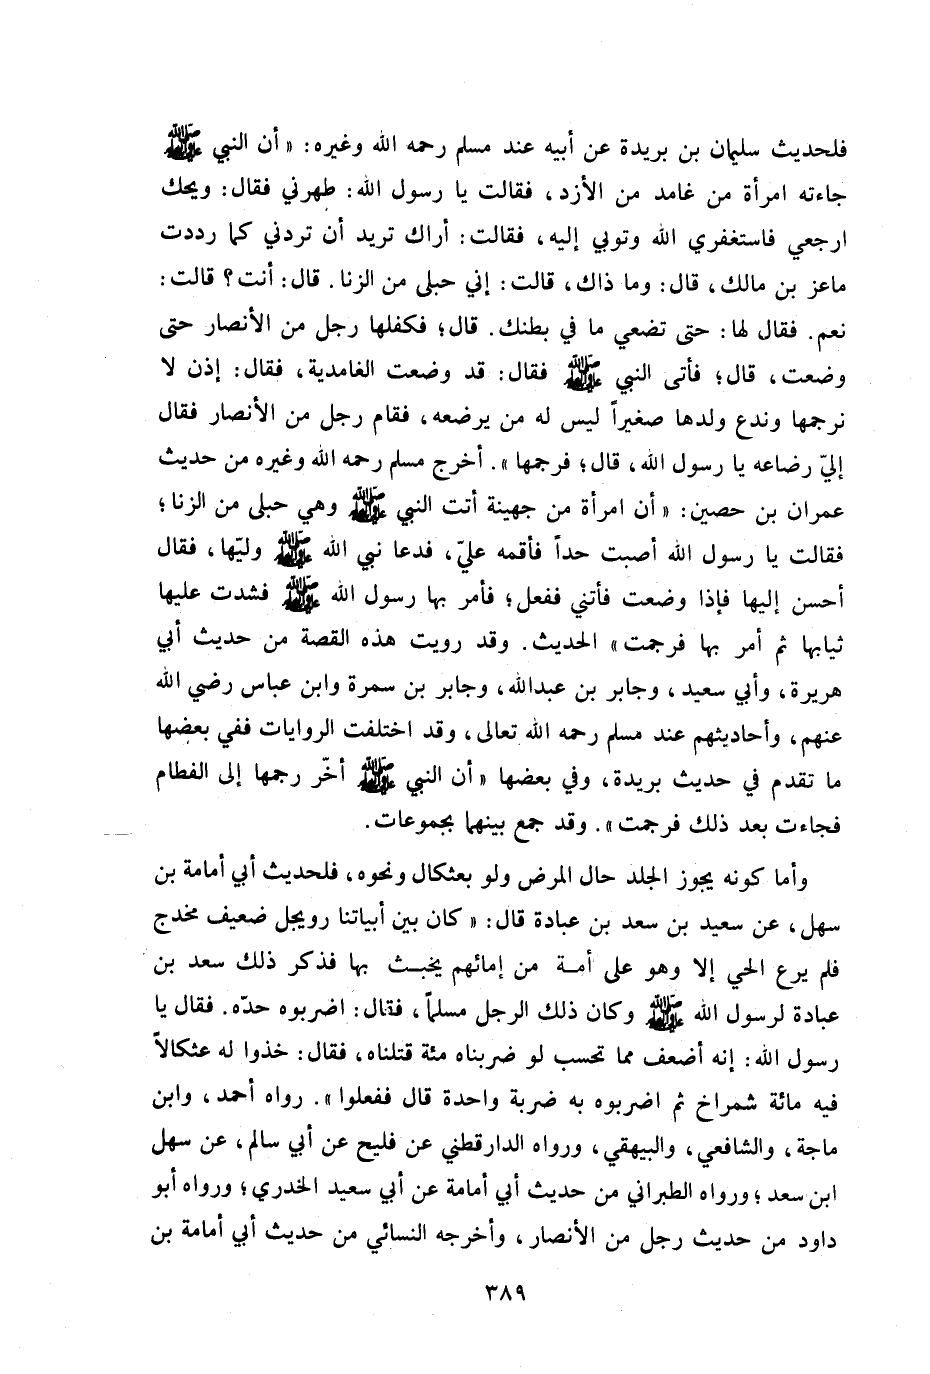 فلحديث سليمان بن بريدة عن أبيه عند مسلم رحمه الله وغيره: « أن النبي ﷺ
جاءته امرأة من غامد من الأزد، فقالت يا رسول الله: طهرني فقال: ويحك
ارجعي فاستغفري الله وتوبي إليه، فقالت: أراك تريد أن تردني كما رددت
ماعز بن مالك، قال: وما ذاك، قالت: إني حبلى من الزنا. قال: أنت؟ قالت:
نعم. فقال لها: حتى تضعي ما في بطنك. قال؛ فكفلها رجل من الأنصار حتى
وضعت، قال؛ فأتى النبي ﷺ فقال: قد وضعت الغامدية، فقال: إذن لا
نرجمها وندع ولدها صغيراً ليس له من يرضعه، فقام رجل من الأنصار فقال
إليّ رضاعه يا رسول الله، قال؛ فرجمها ». أخرج مسلم رحمه الله وغيره من حديث
عمران بن حصين: « أن امرأة من جهينة أتت النبي ﷺ وهي حبلى من الزنا؛
فقالت يا رسول الله أصبت حداً فأقمه عليّ، فدعا نبي الله ﷺ وليّها، فقال
أحسن إليها فإذا وضعت فأتني ففعل؛ فأمر بها رسول الله ﷺ فشدت عليها
ثيابها ثم أمر بها فرجمت » الحديث. وقد رويت هذه القصة من حديث أبي
هريرة، وأبي سعيد، وجابر بن عبدالله، وجابر بن سمرة وابن عباس رضي الله
عنهم، وأحاديثهم عند مسلم رحمه الله تعالى، وقد اختلفت الروايات ففي بعضها
ما تقدم في حديث بريدة، وفي بعضها « أن النبي ﷺ أخّر رجمها إلى الفطام
فجاءت بعد ذلك فرجمت ». وقد جمع بينهما بجموعات.
وأما كونه يجوز الجلد حال المرض ولو بعثكال ونحوه، فلحديث أبي أمامة بن
سهل، عن سعيد بن سعد بن عبادة قال: « كان بين أبياتنا رويجل ضعيف مخدج
فلم يرع الحي إلا وهو على أمة من إمائهم يخبث بها فذكر ذلك سعد بن
عبادة لرسول الله ﷺ وكان ذلك الرجل مسلماً، فقال: اضربوه حدّه. فقال يا
رسول الله: إنه أضعف مما تحسب لو ضربناه مئة قتلناه، فقال: خذوا له عثكالاً
فيه مائة شمراخ ثم اضربوه به ضربة واحدة قال ففعلوا ». رواه أحمد، وابن
ماجة، والشافعي، والبيهقي، ورواه الدارقطني عن فليح عن أبي سالم، عن سهل
ابن سعد؛ ورواه الطبراني من حديث أبي أمامة عن أبي سعيد الخدري؛ ورواه أبو
داود من حديث رجل من الأنصار، وأخرجه النسائي من حديث أبي أمامة بن
٣٨٩